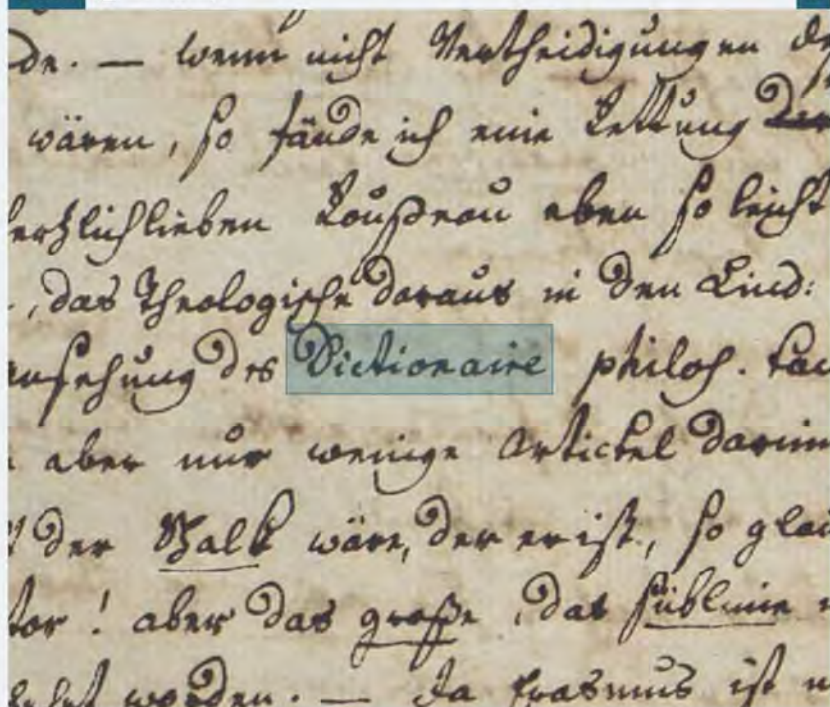 de. — wenn nicht Vertheidigungen
wären, so fände ich eine Rettung
hertzlichlieben Roußeau eben so leicht
, das Theologische daraus in den Lind:
ansehung des Dictionaire philos.
aber nur wenige Artickel darinn
der Schalk wäre, der er ist, so
! aber das große, das süblime
worden. — da Erasmus ist